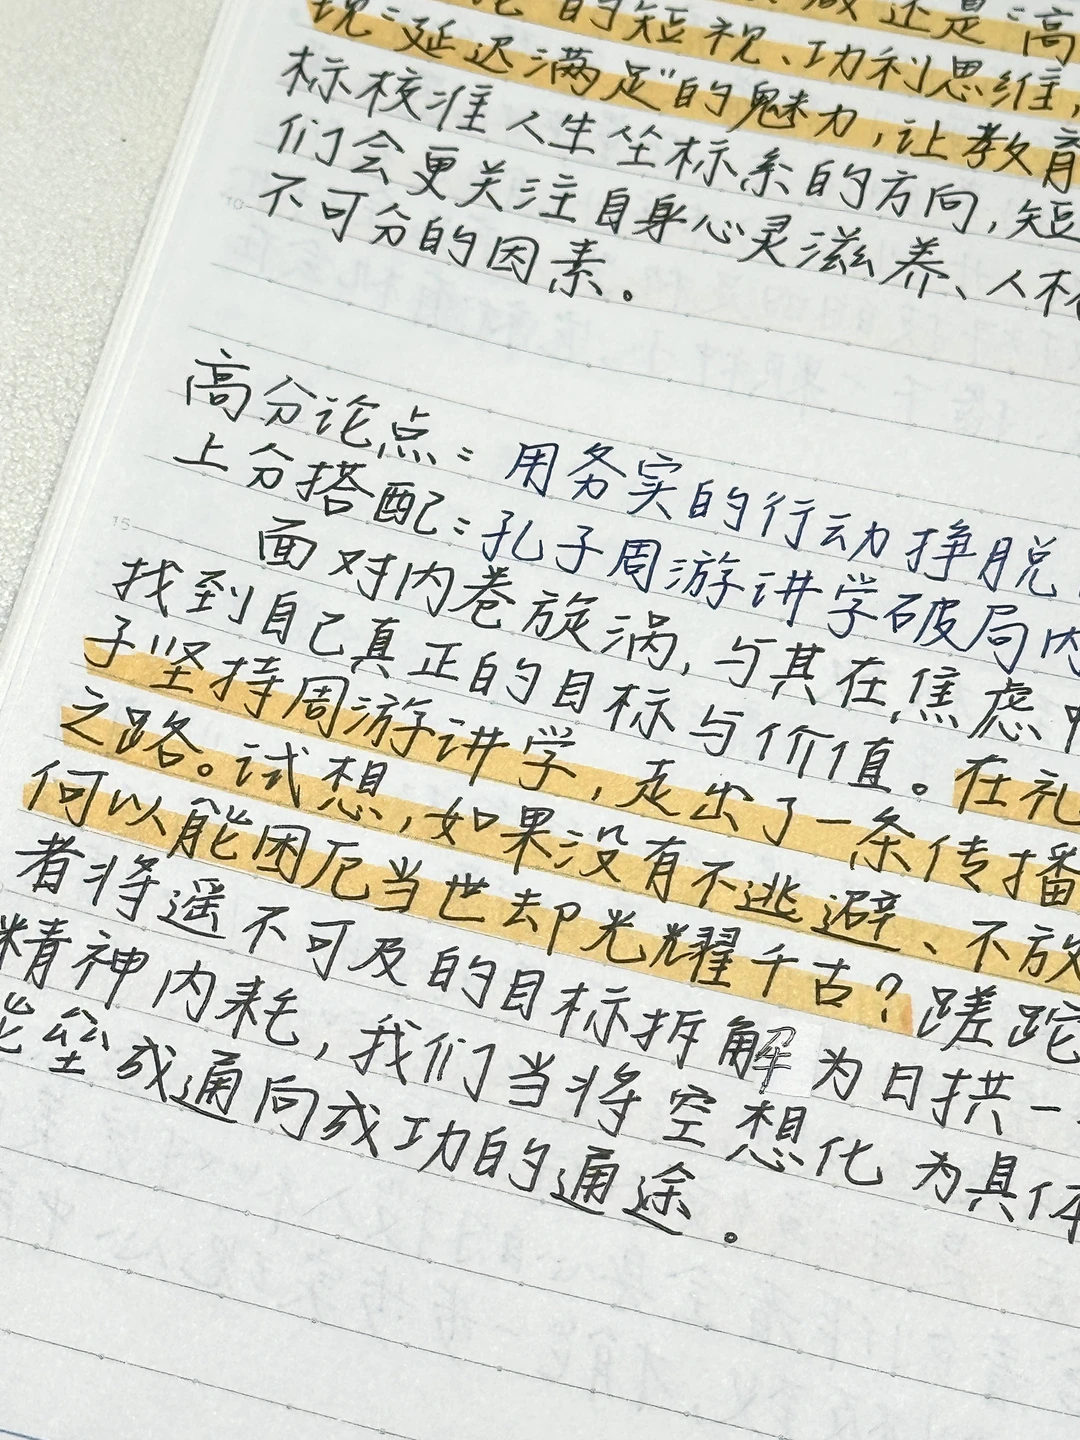 的短视、功利思维,
现"延迟满足"的魅力,让教育
标校准人生坐标系的方向,短
们会更关注自身心灵滋养、人材
不可分的因素。
高分论点:用务实的行动挣脱
上分搭配:孔子周游讲学破局内
面对内卷旋涡,与其在焦虑中
找到自己真正的目标与价值。在礼
子坚持周游讲学,走出了一条传播
之路。试想,如果没有不逃避、不放
何以能困厄当世却光耀千古?蹉跎
者将遥不可及的目标拆解为日拱一
精神内耗,我们当将空想化为具体
能垒成通向成功的通途。
10
15